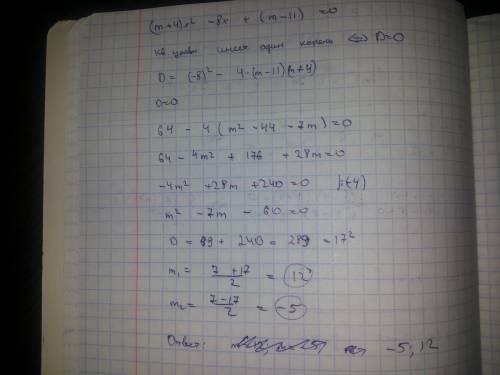 (m+4)x² -8x + (m-11) = 0
кв уравн имеет один корень ⇔ D=0
D = (-8)² - 4·(m-11)(m+4)
D=0
64 - 4(m² -44 -7m)=0
64 - 4m² + 176 + 28m=0
-4m² +28m +240=0 |:(-4)
m² -7m - 60=0
D = 49 + 240 = 289 =17²
m₁ = (7+17)/2 = 12
m₂ = (7-17)/2 = -5
Ответ: -5; 12